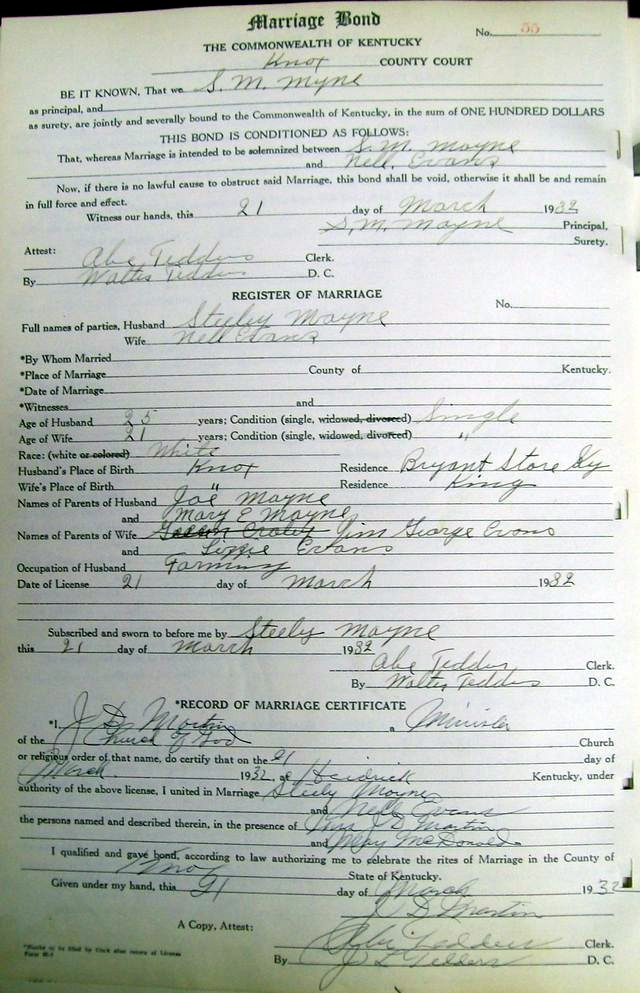 Marriage Bond
No. 55
THE COMMONWEALTH OF KENTUCKY
Knox COUNTY COURT
BE IT KNOWN, That we S. M. Myne
as principal, and
as surety, are jointly and severally bound to the Commonwealth of Kentucky, in the sum of ONE HUNDRED DOLLARS
THIS BOND IS CONDITIONED AS FOLLOWS:
That, whereas Marriage is intended to be solemnized between S. M. Mayne
and Nell Evans
Now, if there is no lawful cause to obstruct said Marriage, this bond shall be void, otherwise it shall be and remain
in full force and effect.
Witness our hands, this 21 day of March 1932
S. M. Mayne Principal,
Surety.
Attest: Abe Tedders Clerk.
By Walter Tedders D. C.
REGISTER OF MARRIAGE
No.
Full names of parties, Husband Steeley Mayne
Wife Nell Evans
*By Whom Married
*Place of Marriage County of Kentucky.
*Date of Marriage
*Witnesses and
Age of Husband 25 years; Condition (single, widowed, divorced) Single
Age of Wife 21 years; Condition (single, widowed, divorced) "
Race: (white or colored) White
Husband's Place of Birth Knox Residence Bryant Store Ky
Wife's Place of Birth " Residence King
Names of Parents of Husband Joe Mayne
and Mary E Mayne
Names of Parents of Wife Jim George Evans
and Evans
Occupation of Husband Farming
Date of License 21 day of March 1932
Subscribed and sworn to before me by Steely Mayne
this 21 day of March 1932
Abe Tedders Clerk.
By Walter Tedders D. C.
*RECORD OF MARRIAGE CERTIFICATE
*I, J. D. Martin a Minister
of the Church of God Church
or religious order of that name, do certify that on the 21 day of
March 1932, at Heidrick Kentucky, under
authority of the above license, I united in Marriage Steely Mayne
and Nell Evans
the persons named and described therein, in the presence of Mrs J D Martin
and May McDonald
I qualified and gave bond, according to law authorizing me to celebrate the rites of Marriage in the County of
Knox State of Kentucky.
Given under my hand, this 21 day of March 1932
J D Martin
A Copy, Attest: Abe Tedders Clerk.
By J L Tedders D. C.